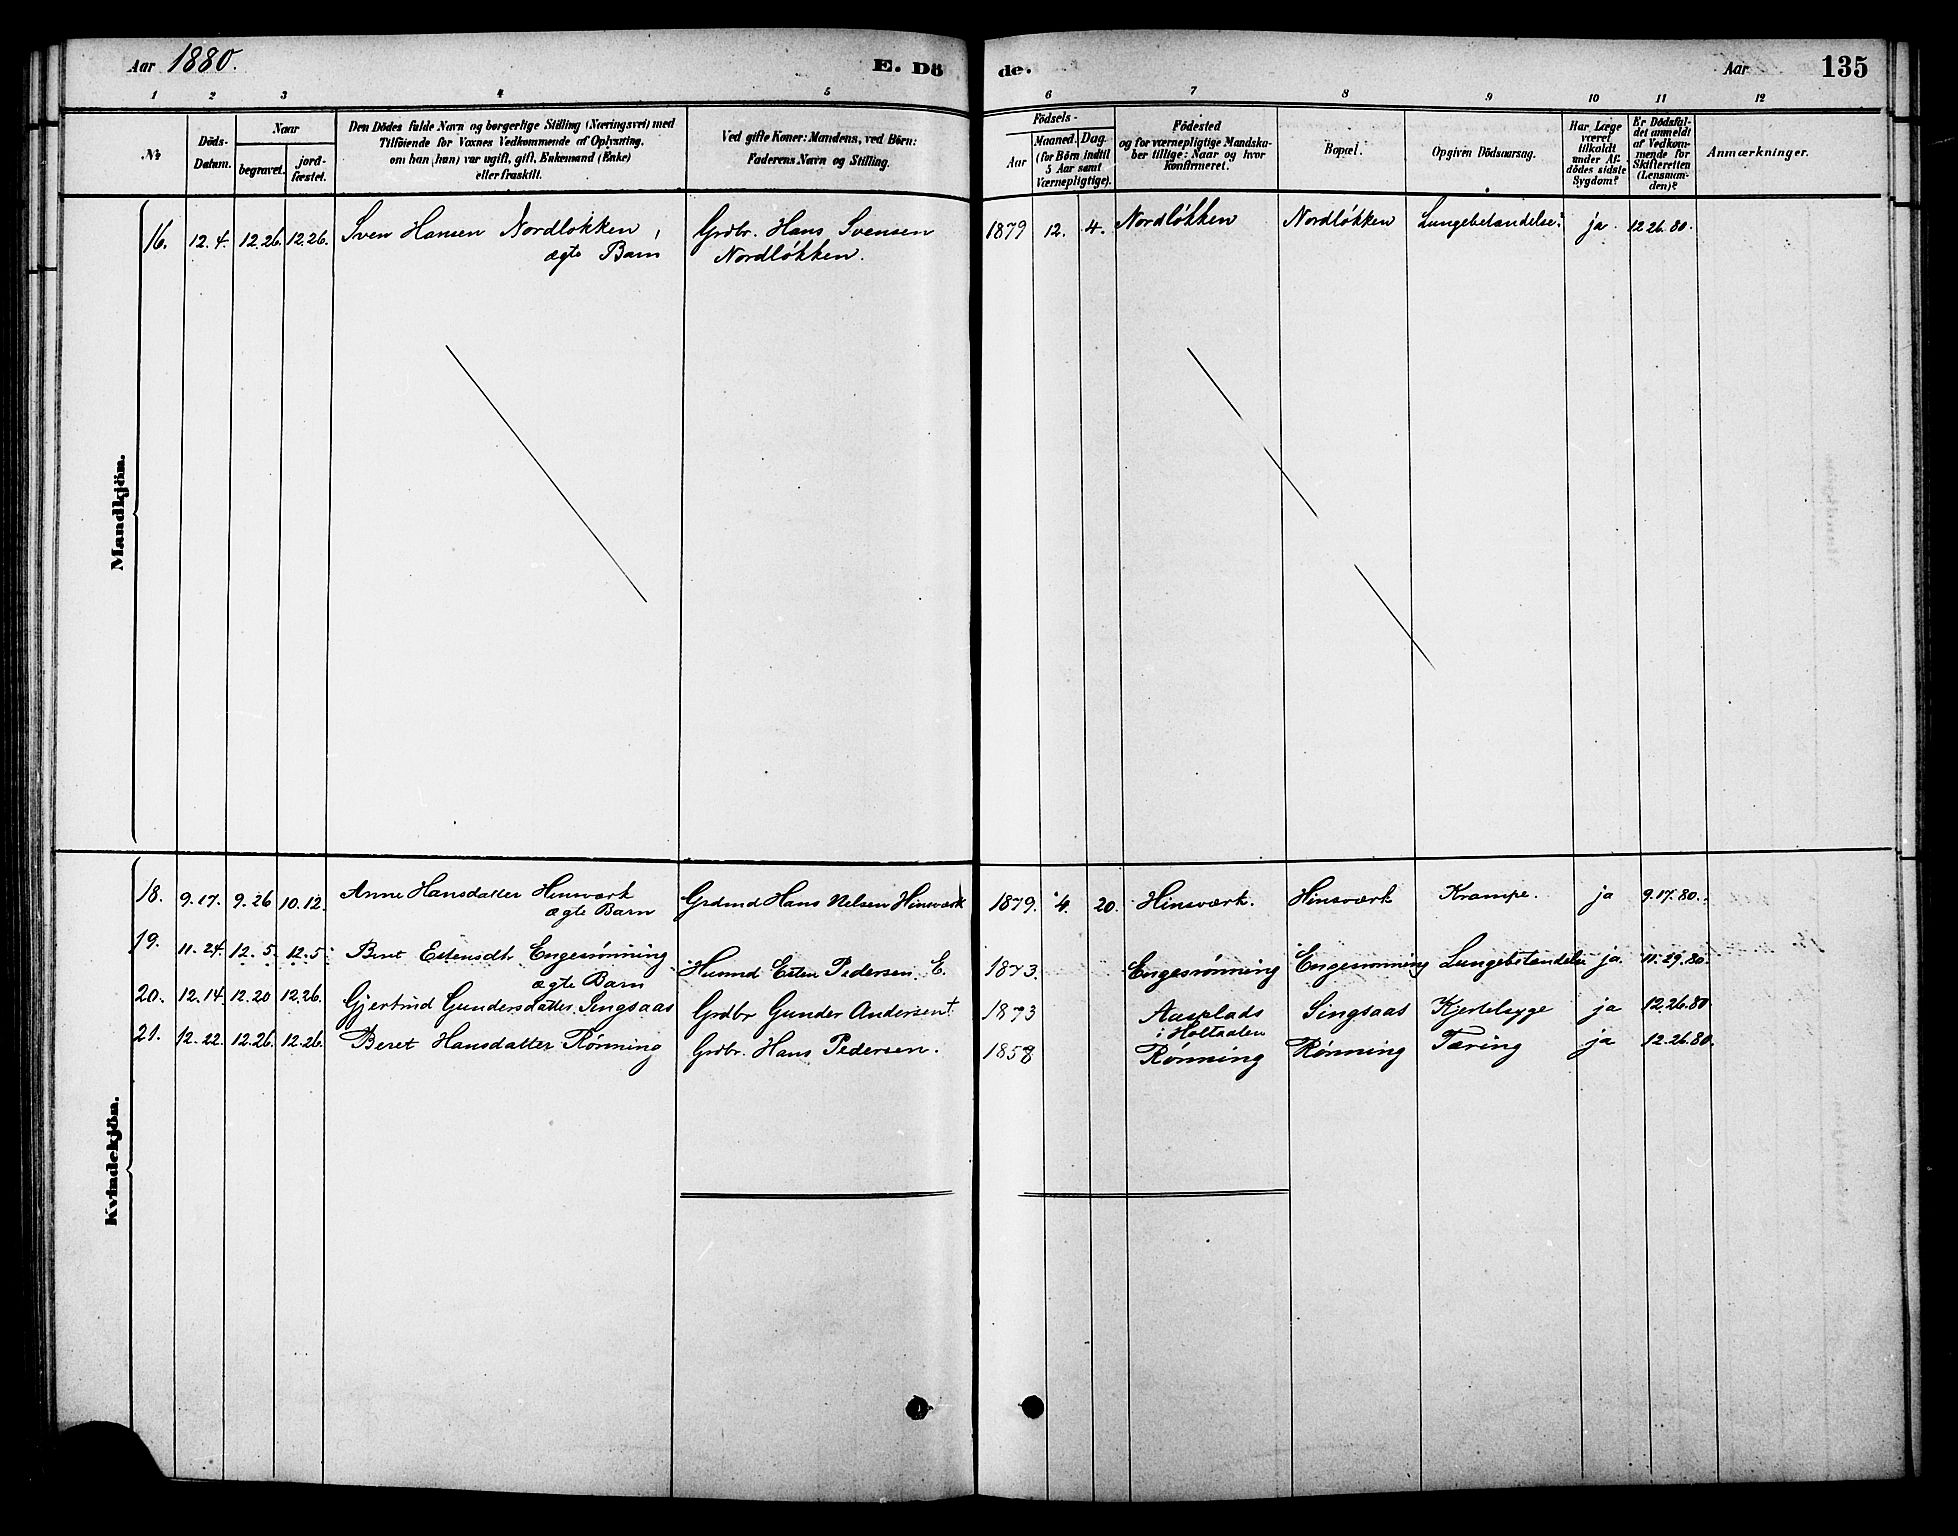 Aar 1880.
E. Dö
de.
Aar
135
1 2 3 4 5 6 7 8 9 10 11 12
No.
Döds-Datum.
Naar
begravet.
jord-fæstet.
Den Dödes fulde Navn og borgerlige Stilling (Næringsvei) med
Tilföiende for Voxnes Vedkommende af Oplysning,
om han (hun) var ugift, gift, Enkemand (Enke)
eller fraskilt.
Ved gifte Koner: Mandens, ved Börn:
Faderens Navn og Stilling.
Födsels-
Aar
Maaned. Dag.
(for Börn indtil
5 Aar samt
Værnepligtige).
Födested
og for værnepligtige Mandska-
ber tillige: Naar og hvor
Konfirmeret.
Bopæl.
Opgiven Dödsaarsag.
Har Læge
været
tilkaldt
under Af-
dödes sidste
Sygdom?
Er Dödsfal-
det anmeldt
af Vedkom-
mende for
Skifteretten
(Lensman-
den)?
Anmærkninger.
Mandkjön.
16. 12.4. 12.26. 12.26. Sven Hansen Nordløkken, Grdbr. Hans Svensen 1879 12. 4. Nordløkken Nordløkken Lungebetændelse. ja. 12.26.80.
ægte Barn Nordløkken.
Kvindekjön.
18. 9.17. 9.26 10.12. Anne Hansdatter Hinsværk Grdmd Hans Nelsen Hinsværk 1879. 4. 20. Hinsværk. Hinsværk Krampe. ja 9.17.80.
ægte Barn
19. 11.24. 12.5. 12.5. Beret Estensdt. Engesrønning Huusmd Esten Pedersen E. 1873. Engesrønning Engesrønning Lungebetændelse ja 11.29.80.
ægte Barn
20. 12.14. 12.20 12.26. Gjertrud Gundersdatter Singsaas Grdbr Gunder Andersen † 1873 Aasplads Singsaas Kjertelsyge ja 12.26.80
i Holtaalen
21. 12.22. 12.26. 12.26. Beret Hansdatter Rønning Grdbr. Hans Pedersen. 1858 Rønning Rønning Tæring ja 12.26.80.